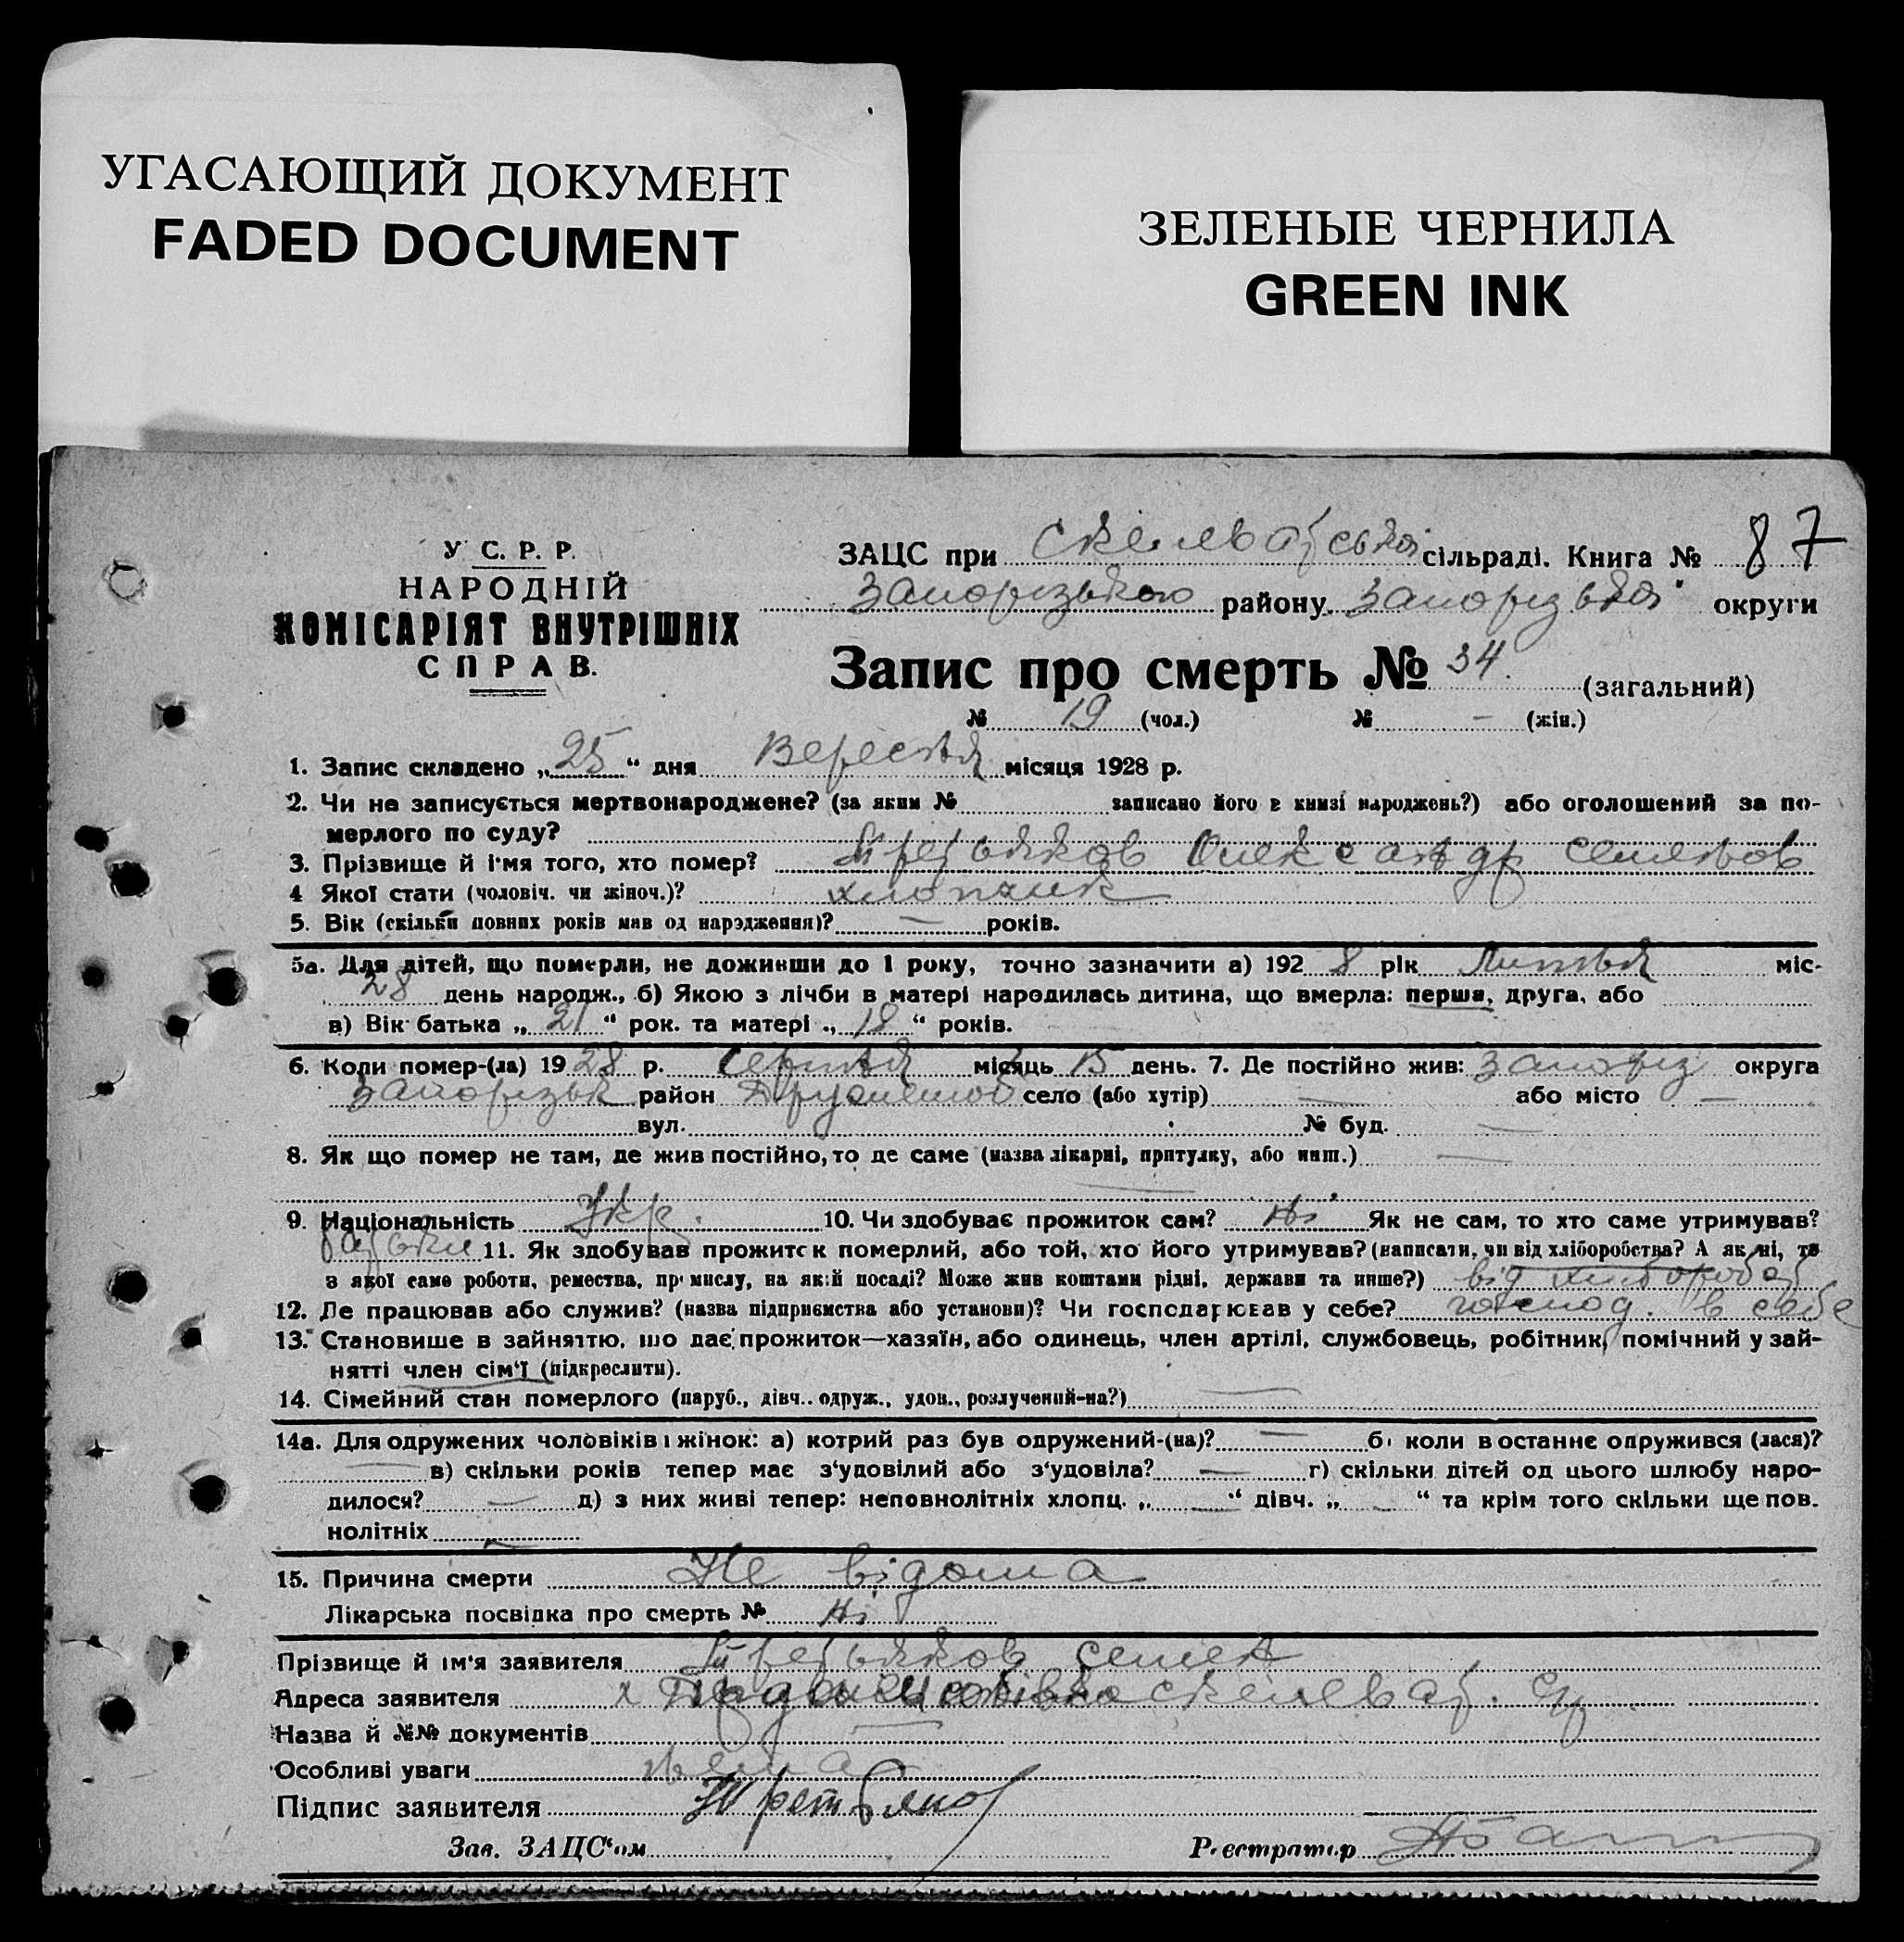 УГАСАЮЩИЙ ДОКУМЕНТ
FADED DOCUMENT
ЗЕЛЕНЫЕ ЧЕРНИЛА
GREEN INK
У. С. Р. Р.
НАРОДНІЙ
КОМІСАРІЯТ ВНУТРІШНІХ
СПРАВ.
ЗАЦС при сільраді. Книга № 87
Запорізького району Запорізької округи
Запис про смерть № 34. (загальний)
№ 19 (чол.) № — (жін.)
1. Запис складено „25“ дня Вересня місяця 1928 р.
2. Чи не записується мертвонароджене? (за яким № записано його в книзі народжень?) або оголошений за по-
мерлого по суду?
3. Прізвище й і'мя того, хто помер? Третьяков Олександр Семенов
4 Якої стати (чоловіч. чи жіноч.)? хлопчик
5. Вік (скільки повних років мав од народження)? — років.
5а. Для дітей, що померли, не доживши до 1 року, точно зазначити а) 1928 рік Липня міс-
28 день народж., б) Якою з лічби в матері народилась дитина, що вмерла: перша, друга, або
в) Вік батька „21“ рок. та матері „18“ років.
6. Коли помер-(ла) 1928 р. Серпня місяць 15 день. 7. Де постійно жив: Запоріз округа
Запорізьк район село (або хутір) — або місто —
вул. № буд. —
8. Як що помер не там, де жив постійно, то де саме (назва лікарні, притулку, або инш.) —
—
9. Національність Укр. 10. Чи здобуває прожиток сам? Ні Як не сам, то хто саме утримував?
батьки 11. Як здобував прожиток померлий, або той, хто його утримував? (написати, чи від хліборобства? А як ні, то
з якої саме роботи, ремества, промислу, на якій посаді? Може жив коштами рідні, держави та инше?) від хлібороб
12. Де працював або служив? (назва підприємства або установи)? Чи господарював у себе? господ. в себе
13. Становище в зайняттю, що дає прожиток—хазяїн, або одинець, член артілі, службовець, робітник, помічний у зай-
нятті член сім'ї (підкреслити).
14. Сімейний стан померлого (паруб., дівч., одруж., удов., розлучений-на?) —
14а. Для одружених чоловіків і жінок: а) котрий раз був одружений-(на)? — б) коли востаннє одружився (лася)?
— в) скільки років тепер має з'удовілий або з'удовіла? — г) скільки дітей од цього шлюбу наро-
дилося? — д) з них живі тепер: неповнолітніх хлопц. „—“ дівч. „—“ та крім того скільки ще пов.
нолітніх —
15. Причина смерти Не відома
Лікарська посвідка про смерть № Ні
Прізвище й ім'я заявителя Третьяков Семен
Адреса заявителя
Назва й №№ документів —
Особливі уваги нема
Підпис заявителя Третьяков
Зав. ЗАЦС'ом Реєстратор